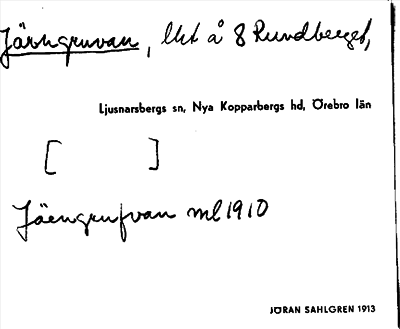 Järngruvan, Ukt å 8 Rundberget,
Ljusnarsbergs sn, Nya Kopparbergs hd, Örebro län
[ ]
Järngrufvan ml 1910
JÖRAN SAHLGREN 1913